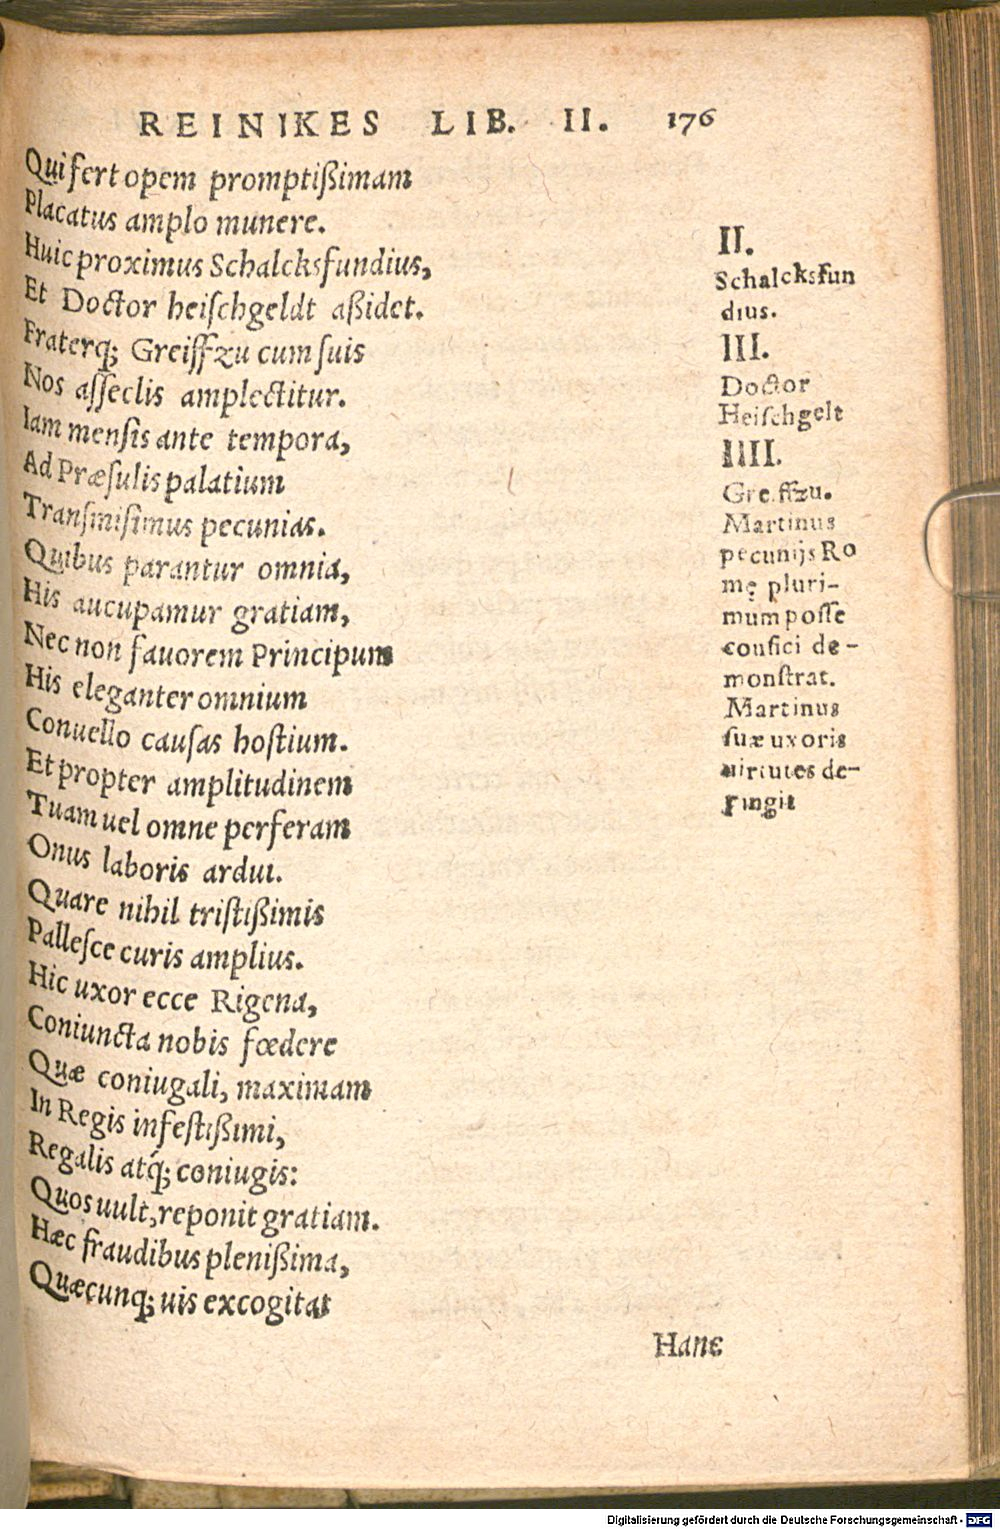 REINIKES LIB. II. 176
Qui fert opem promptißimam
Placatus amplo munere.
Huic proximus Schalcksfundius,
Et Doctor heiſchgeldt aßidet.
Fraterq; Greiffzu cum ſuis
Nos aſſeclis amplectitur.
Iam menſis ante tempora,
Ad Præſulis palatium
Tranſmiſimus pecunias.
Quibus parantur omnia,
His aucupamur gratiam,
Nec non fauorem Principum
His eleganter omnium
Conuello cauſas hoſtium.
Et propter amplitudinem
Tuam uel omne perferam
Onus laboris ardui.
Quare nihil triſtißimis
Palleſce curis amplius.
Hic uxor ecce Rigena,
Coniuncta nobis fœdere
Quæ coniugali, maximam
In Regis infeſtißimi,
Regalis atq́; coniugis:
Quos uult, reponit gratiam.
Hæc fraudibus plenißima,
Quæcunq; uis excogitat
Hanc
II.
Schalcksfun
dius.
III.
Doctor
Heiſchgelt
IIII.
Greiffzu.
Martinus
pecunijs Ro
mę pluri-
mum poſſe
confici de-
monſtrat.
Martinus
ſuæ uxoris
uirtutes de-
pingit
Digitalisierung gefördert durch die Deutsche Forschungsgemeinschaft - DFG